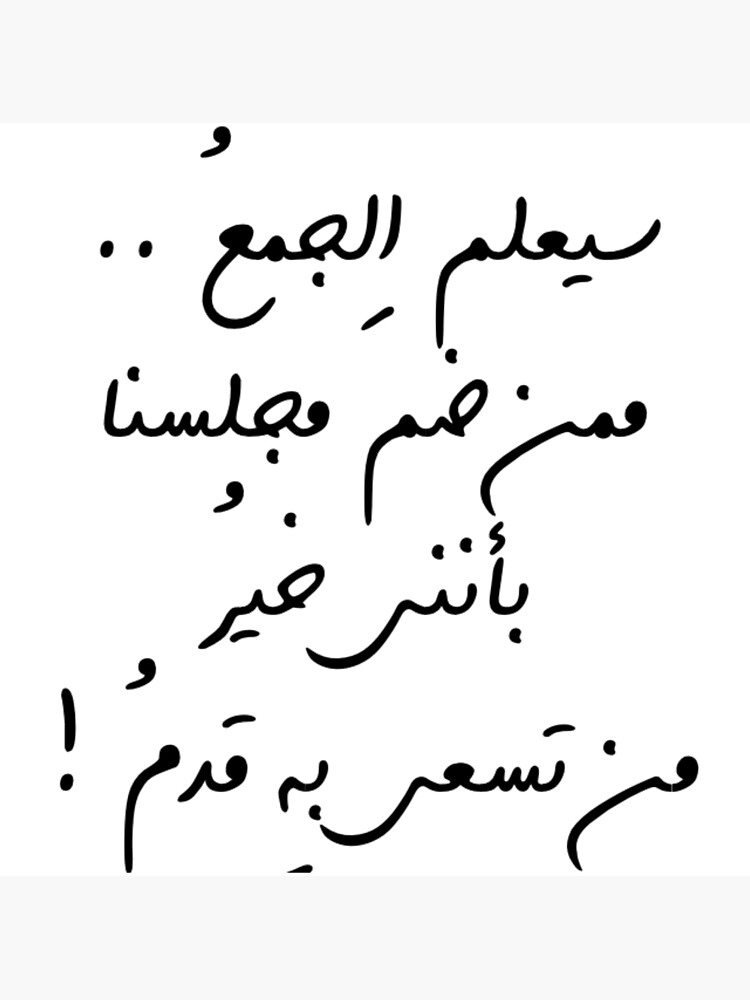 سيعلم الِجمعُ ..
ممن ضم مجلسنا
بأنني خيرُ
من تسعى بهِ قدمُ !